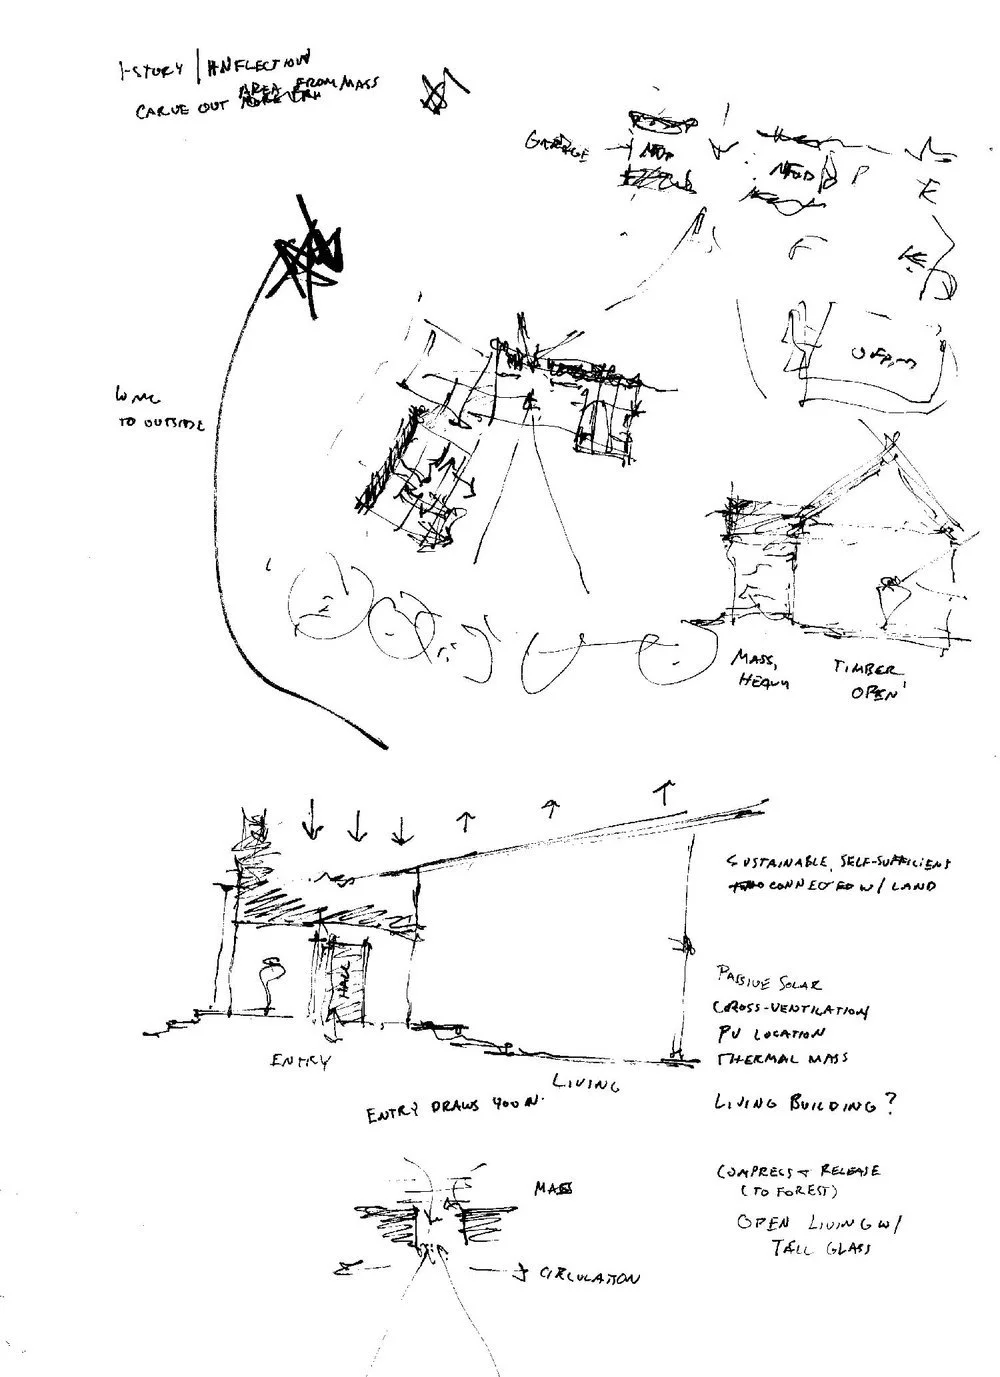 1-STORY | INFLECTION
CARVE OUT AREA FROM MASS
GARAGE
MUD
MUD
P
E
LIVING
TO OUTSIDE
OPEN
MASS,
HEAVY
TIMBER,
OPEN
SUSTAINABLE, SELF-SUFFICIENT
CONNECTED W/ LAND
HALL
PASSIVE SOLAR
CROSS-VENTILATION
PV LOCATION
THERMAL MASS
ENTRY
LIVING
ENTRY DRAWS YOU IN.
LIVING BUILDING?
COMPRESS + RELEASE
(TO FOREST)
MASS
OPEN LIVING W/
TALL GLASS
CIRCULATION